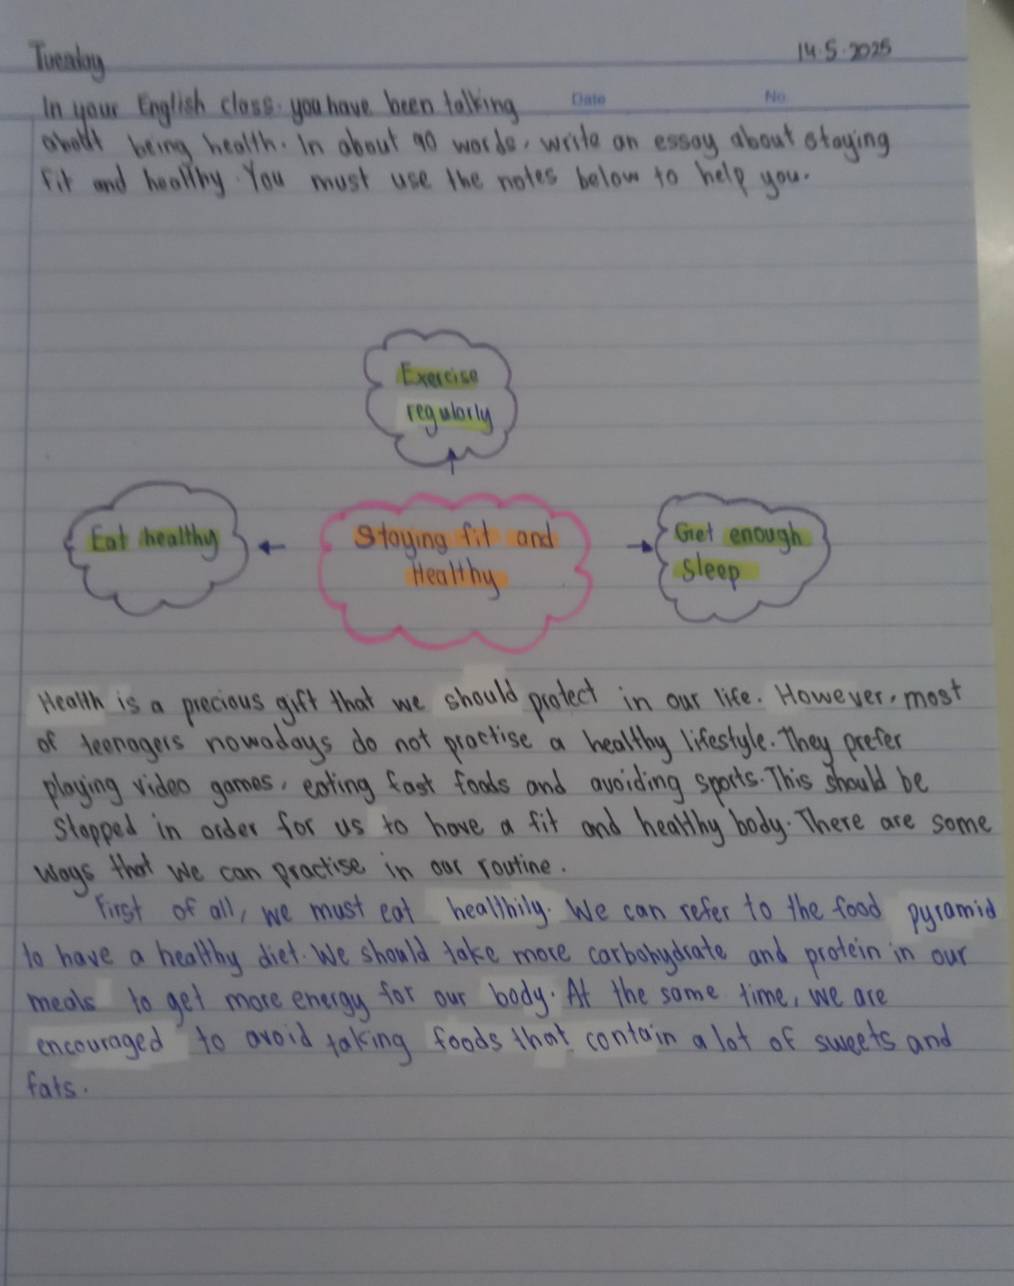 Tuesday
14.5.2025
Date
No.
In your English class. you have been talking
about being health. In about 90 words, write an essay about staying
fit and healthy. You must use the notes below to help you.
Exercise
regularly
Eat healthy
Staying fit and
Healthy
Get enough
Sleep
Health is a precious gift that we should protect in our life. However, most
of teenagers nowadays do not practise a healthy lifestyle. They prefer
playing video games, eating fast foods and avoiding sports. This should be
stopped in order for us to have a fit and healthy body. There are some
ways that we can practise in our routine.
First of all, we must eat healthily. We can refer to the food pyramid
to have a healthy diet. We should take more carbohydrate and protein in our
meals to get more energy for our body. At the same time, we are
encouraged to avoid taking foods that contain a lot of sweets and
fats.